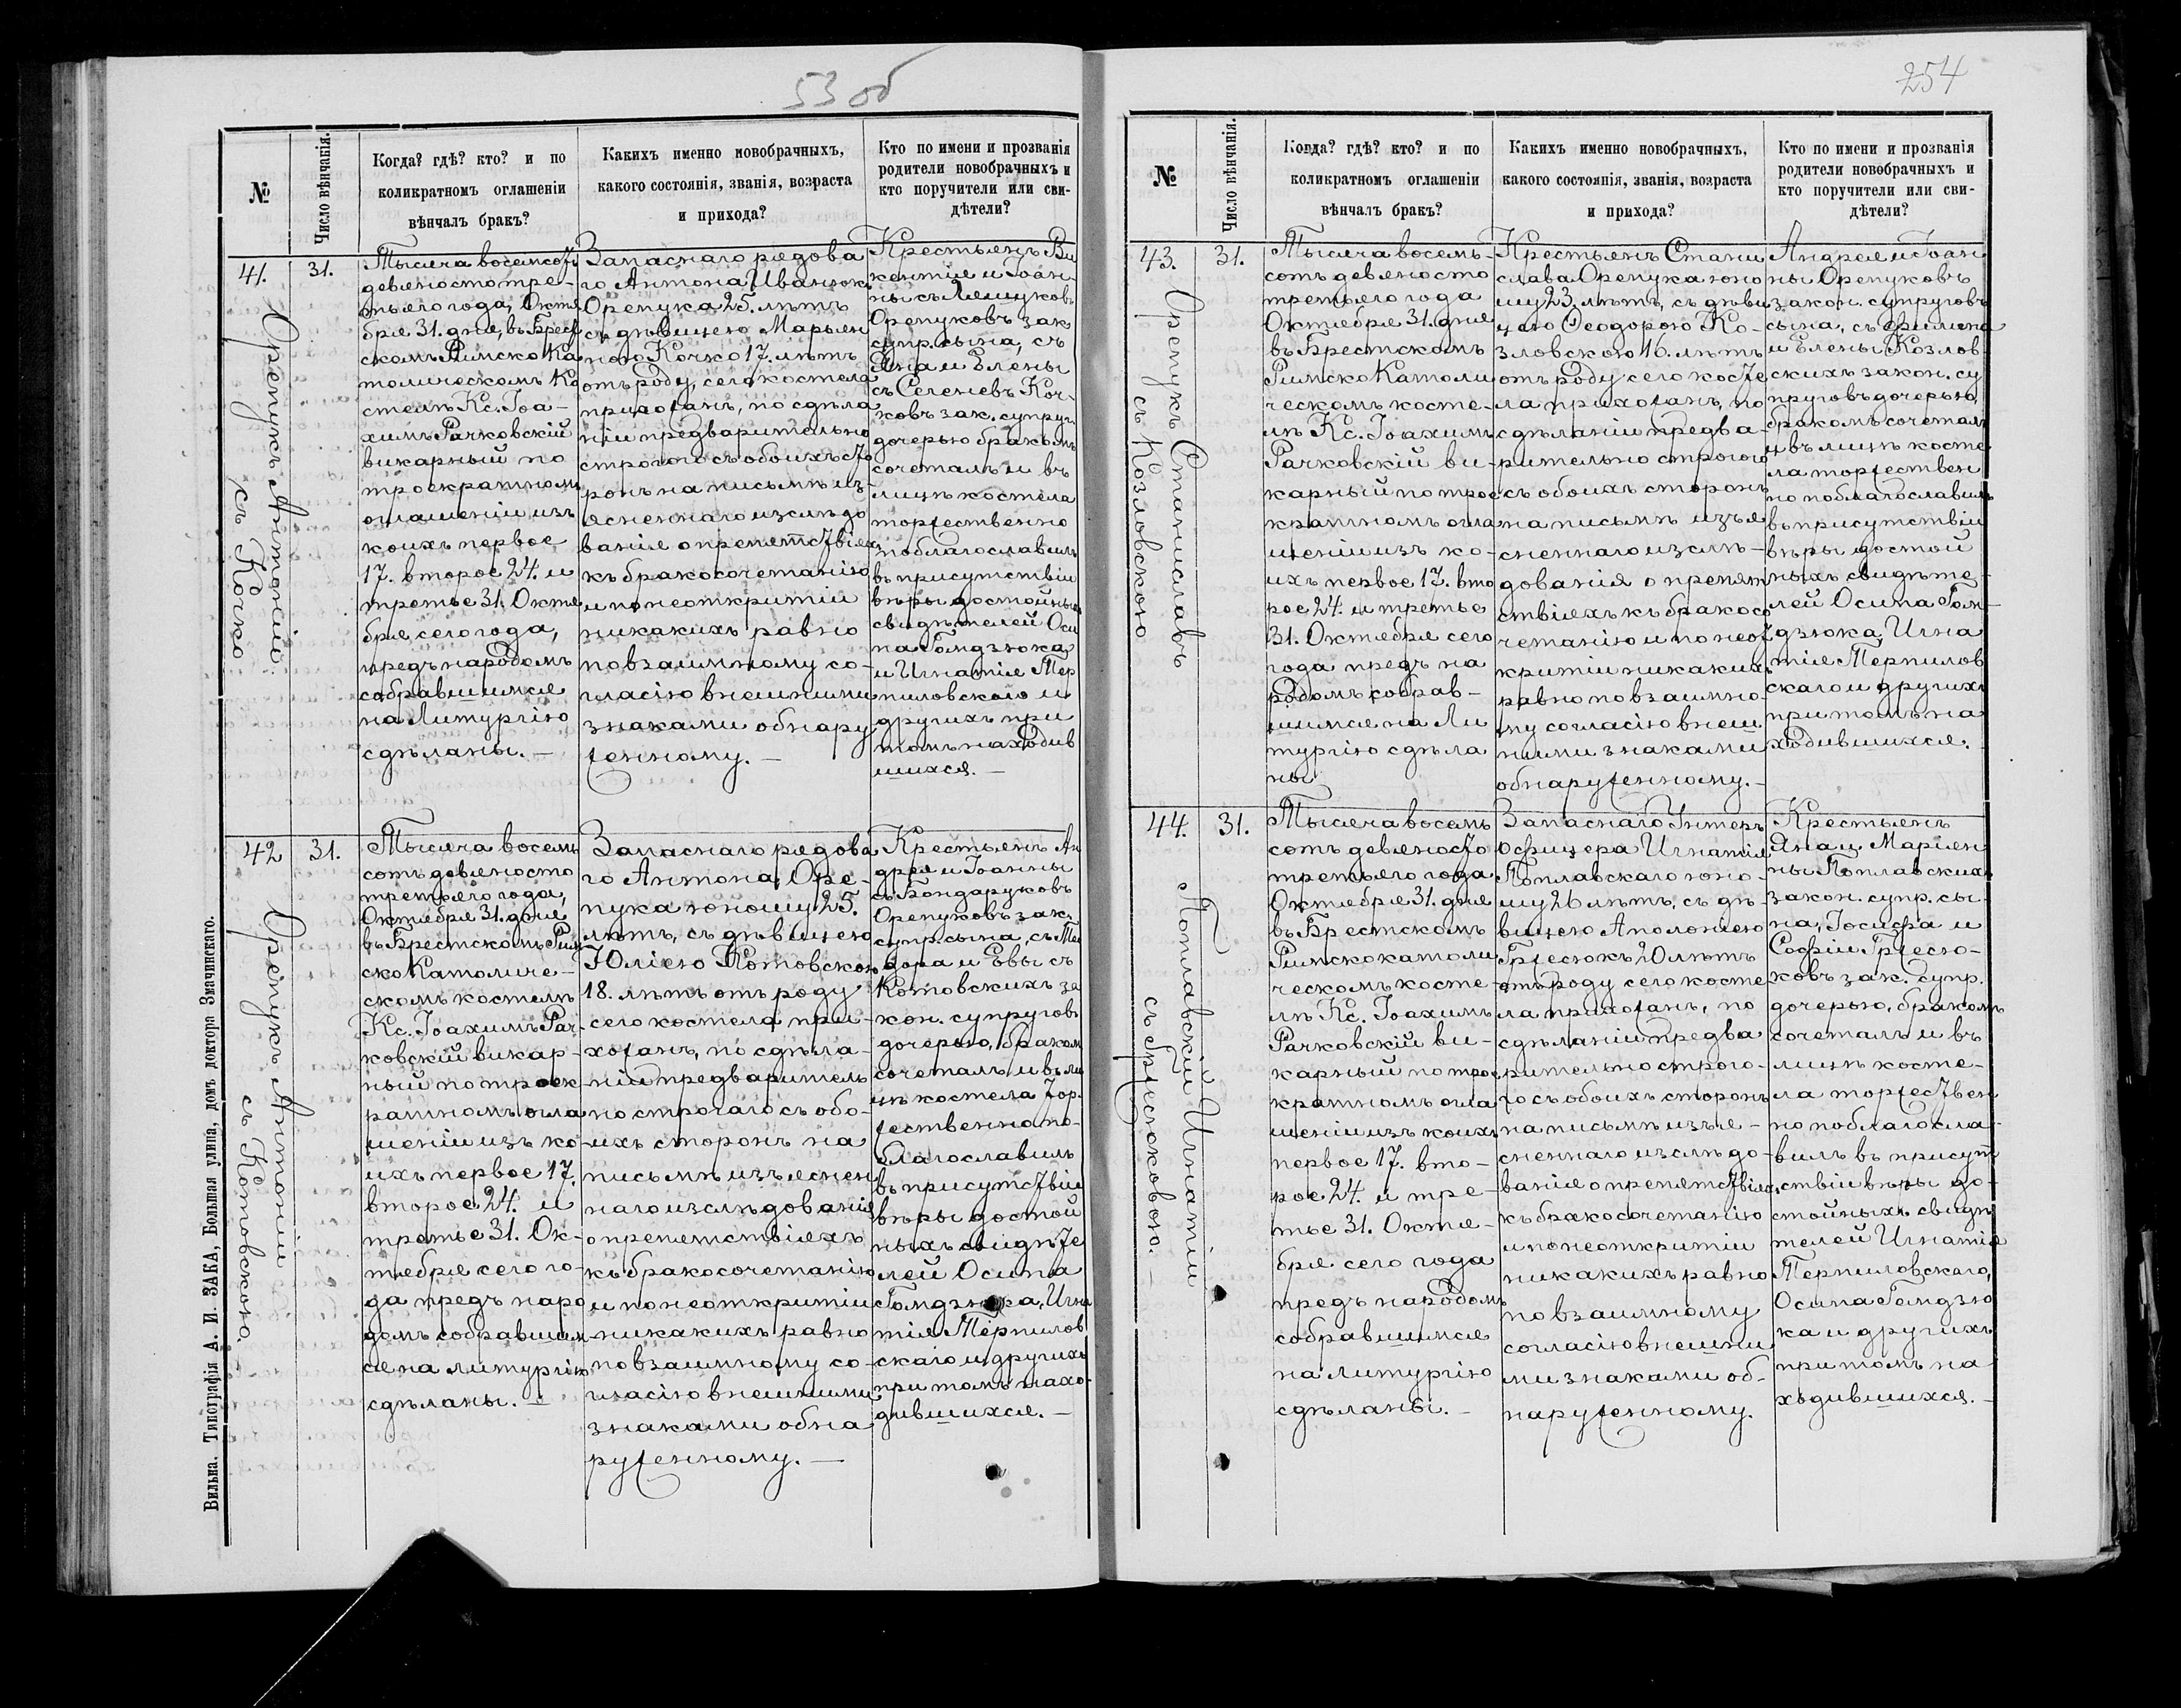 53 об
№
Число вѣнчанія.
Когда? гдѣ? кто? и по
коликратномъ оглашеніи
вѣнчалъ бракъ?
Какихъ именно новобрачныхъ,
какого состоянія, званія, возраста
и прихода?
Кто по имени и прозванія
родители новобрачныхъ и
кто поручители или сви-
дѣтели?
41.
Орепукъ Антоній
съ Кочко.
31.
Тысяча восемсотъ
девяносто тре-
тьяго года, Октя
бря 31. дня, въ Брест
скомъ Римско Ка
толическомъ Ко
стелѣ Кс. Іоа-
химъ Рачковскій
викарный по
троекратномъ
оглашеніи изъ
коихъ первое
17. второе 24. и
третье 31. Октя
бря сего года,
предъ народомъ
собравшимся
на Литургію
сдѣланы. —
Запаснаго рядова
го Антона Иванюк
Орепука 25. лѣтъ
съ дѣвицею Марьян
ною Кочко 17. лѣтъ
отъ роду, сего костела
прихожанъ, по сдѣла
ніи предварительно
строгого съ обоихъ сто
ронъ на письмѣ из-
ясненнаго изслѣдо
ванія о препятствіях
къ бракосочетанію
и по неоткритіи
никакихъ равно
по взаимному со-
гласію внешними
знаками обнару
женному. —
Крестьянъ Ви
кентія и Іоан
ны съ Лящуковъ
Орепуковъ зак
супр. сына, съ
Яна и Елены
съ Селенёвъ Коч-
ковъ зак. супруг
дочерью бракомъ
сочеталъ и въ
лицѣ костела
торжественно
поблагославилъ
въ присутствіи
вѣры достойныхъ
свидѣтелей Оси
па Гомдзюка
и Игнатія Мер
пиловского и
другихъ при
томъ находив
шихся. —
42
Орепукъ Антоній
съ Котовскою.
31.
Тысяча восемь
сотъ девяносто
третьяго года,
Октября 31. дня
въ Брестскомъ Рим
ско Католиче-
скомъ костелѣ
Кс. Іоахимъ Рач-
ковскій викар-
ный по троек-
ратномъ огла
шеніи изъ ко
ихъ первое 17.
второе 24. и
третье 31. Ок-
тября сего го-
да предъ наро
домъ собравшим
ся на литургію
сдѣланы. —
Запаснаго рядова
го Антона Оре-
пука юношу 25.
лѣтъ, съ дѣвицею
Юліею Котовскою
18. лѣтъ отъ роду
сего костела при-
хожанъ, по сдѣла-
ніи предваритель
но строгаго съ обо-
ихъ сторонъ на
письмѣ изъяснен
наго изслѣдованія
о препятствіяхъ
къ бракосочетанію
и по неоткритіи
никакихъ равно
по взаимному со-
гласію внешними
знаками обна
руженному. —
Крестьянъ Ан
дрея и Іоанны
съ Бондаруковъ
Орепуковъ зак.
супр. сына, съ Тео
дора и Евы съ
Котовскихъ за
кон. супруговъ
дочерью, бракомъ
сочеталъ и въ ли
цѣ костела тор-
жественно по-
благославилъ
въ присутствіи
вѣры достой
ныхъ свидѣте
лей Осипа
Гомдзюка, Игна
тія Мерпилов
скаго и другихъ
при томъ нахо-
дившихся. —
Вильна. Типографія А. И. ЗАКА, Большая улица, домъ доктора Змачинскаго.
254
№
Число вѣнчанія.
Когда? гдѣ? кто? и по
коликратномъ оглашеніи
вѣнчалъ бракъ?
Какихъ именно новобрачныхъ,
какого состоянія, званія, возраста
и прихода?
Кто по имени и прозванія
родители новобрачныхъ и
кто поручители или сви-
дѣтели?
43.
Орепукъ Станиславъ
съ Козловскою
31.
Тысяча восемь-
сотъ девяносто
третьяго года
Октября 31. дня
въ Брестскомъ
Римско Католи
ческомъ косте-
лѣ Кс. Іоахимъ
Рачковскій ви-
карный по трое
кратномъ огла
шеніи изъ ко-
ихъ первое 17. вто
рое 24. и третье
31. Октября сего
года предъ на
родомъ собрав-
шимся на Ли
тургію сдѣла
ны
Крестьянъ Стани
слава Орепука юно
шу 23. лѣтъ, съ дѣви
цею Ѳеодорою Ко-
зловскою 16. лѣтъ
отъ роду сего косте
ла прихожанъ, по
сдѣланіи предва-
рительно строгого
съ обоихъ сторонъ
на письмѣ изъя
сненнаго изслѣ-
дованія о препят
ствіяхъ къ бракосо
четанію и по неот
критіи никакихъ
равно по взаимно
му согласію внеш
ними знаками
обнаруженному. —
Андрея и Іоан
ны Орепуковъ
закон. супруговъ
сына, съ Филипа
и Елены Козлов
скихъ закон. су
пруговъ дочерью,
бракомъ сочеталъ
и въ лицѣ косте
ла торжествен
но поблагославилъ
въ присутствіи
вѣры достой
ныхъ свидѣте-
лей Осипа Гом-
дзюка, Игна
тія Мерпилов
скаго и другихъ
при томъ на
ходившихся. —
44.
Поплавскій Игнатій
съ Гржесюковою. —
31.
Тысяча восемь
сотъ девяносто
третьяго года
Октября 31. дня
въ Брестскомъ
Римскокатоли
ческомъ косте-
лѣ Кс. Іоахимъ
Рачковскій ви-
карный по трое
кратномъ огла
шеніи изъ коихъ
первое 17. вто-
рое 24. и тре-
тье 31. Октя-
бря сего года
предъ народомъ
собравшимся
на литургію
сдѣланы. —
Запаснаго Унтеръ
Офицера Игнатія
Поплавскаго юно-
шу 26 лѣтъ, съ дѣ-
вицею Аполонією
Гржесюкъ 20 лѣтъ
отъ роду сего косте
ла прихожанъ, по
сдѣланіи предва
рительно строго-
го съ обоихъ сторонъ
на письмѣ изъя-
сненнаго изслѣдо-
ванія о препятствіях
къ бракосочетанію
и по неоткритіи
никакихъ равно
по взаимному
согласію внешни
ми знаками об-
наруженному.
Крестьянъ
Яна и Маріян
ны Поплавскихъ
закон. супр. сы-
на, Іосифа и
Софіи Гржесю-
ковъ зак. супр.
дочерью, бракомъ
сочеталъ и въ
лицѣ косте-
ла торжествен
но поблагосла-
вилъ въ присут
ствіи вѣры до-
стойныхъ свидѣ
телей Игнатія
Терпиловскаго,
Осипа Гомдзю
ка и другихъ
при томъ на
ходившихся. —